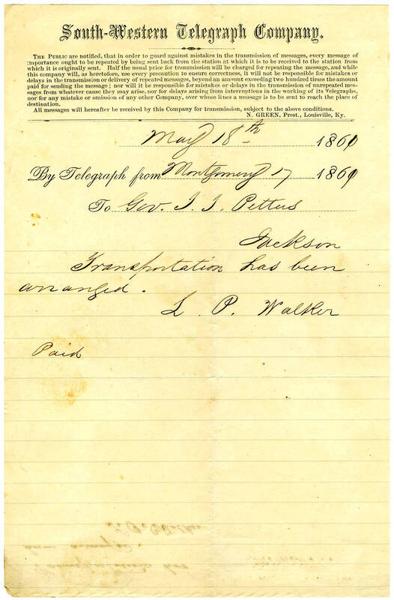 South-Western Telegraph Company,
THE PUBLIC are notified, that in order to guard against mistakes in the transmission of messages, every message of
importance ought to be repeated by being sent back from the station at which it is to be received to the station from
which it is originally sent. Half the usual price for transmission will be charged for repeating the message, and while
this company will, as heretofore, use every precaution to ensure correctness, it will not be responsible for mistakes or
delays in the transmission or delivery of repeated messages, beyond an amount exceeding two hundred times the amount
paid for sending the message; nor will it be responsible for mistakes or delays in the transmission of unrepeated messages
from whatever cause they may arise, nor for delays arising from interruptions in the working of its Telegraphs,
nor for any mistake or omission of any other Company, over whose lines a message is to be sent to reach the place of
destination.
All messages will hereafter be received by this Company for transmission, subject to the above conditions.
N. GREEN, Prest., Louisville, Ky.
May 18th 1861
By Telegraph from Montgomery 17 1861
To Gov. J. J. Pettus
Jackson
Transportation has been
arranged.
L. P. Walker
Paid